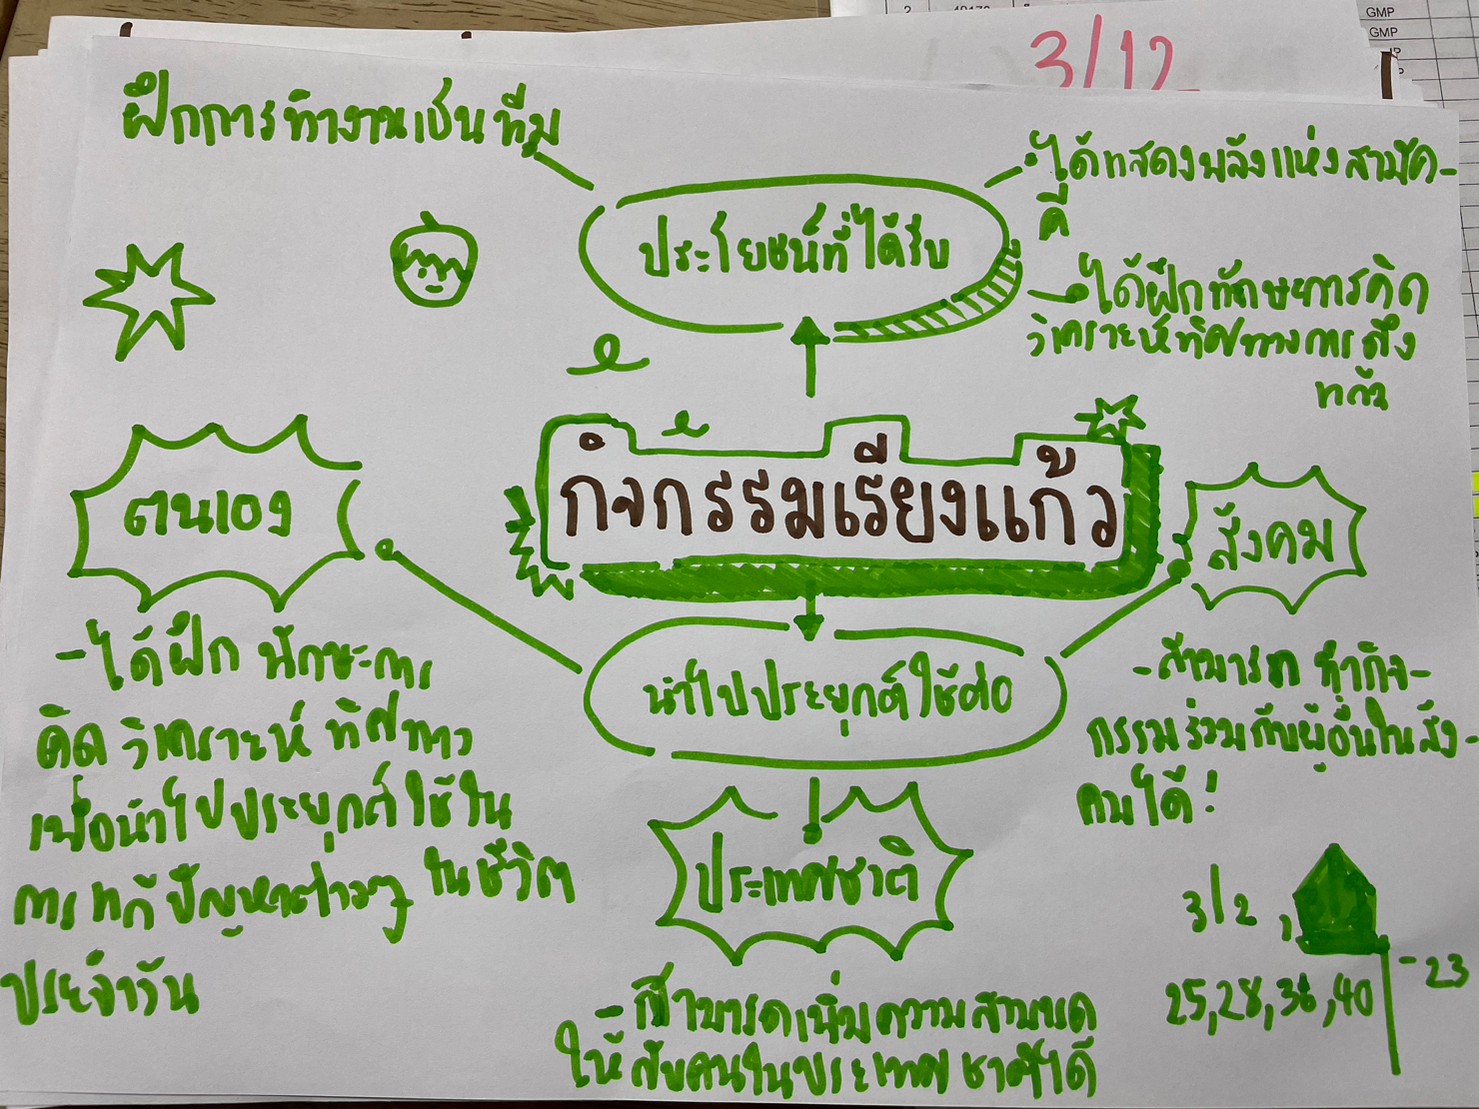 3/12
GMP
GMP
ฝึกการทำงานเป็นทีม
ประโยชน์ที่ได้รับ
-ได้แสดงพลังแห่งสามัค-
คี
-ได้ฝึกทักษะการคิด
วิเคราะห์ทิศทางการดึง
แก้ว
กิจกรรมเรียงแก้ว
ตนเอง
-ได้ฝึก ทักษะการ
คิด วิเคราะห์ ทิศทาง
เพื่อนำไปประยุกต์ใช้ใน
การแก้ปัญหาต่างๆ ในชีวิต
ประจำวัน
นำไปประยุกต์ใช้ต่อ
สังคม
-สามารถ ทำกิจ-
กรรมร่วมกับผู้อื่นในสัง-
คมได้!
ประเทศชาติ
-สามารถเพิ่มความสามารถ
ให้กับคนในประเทศชาติได้
3/2,
-23
25,28,36,40